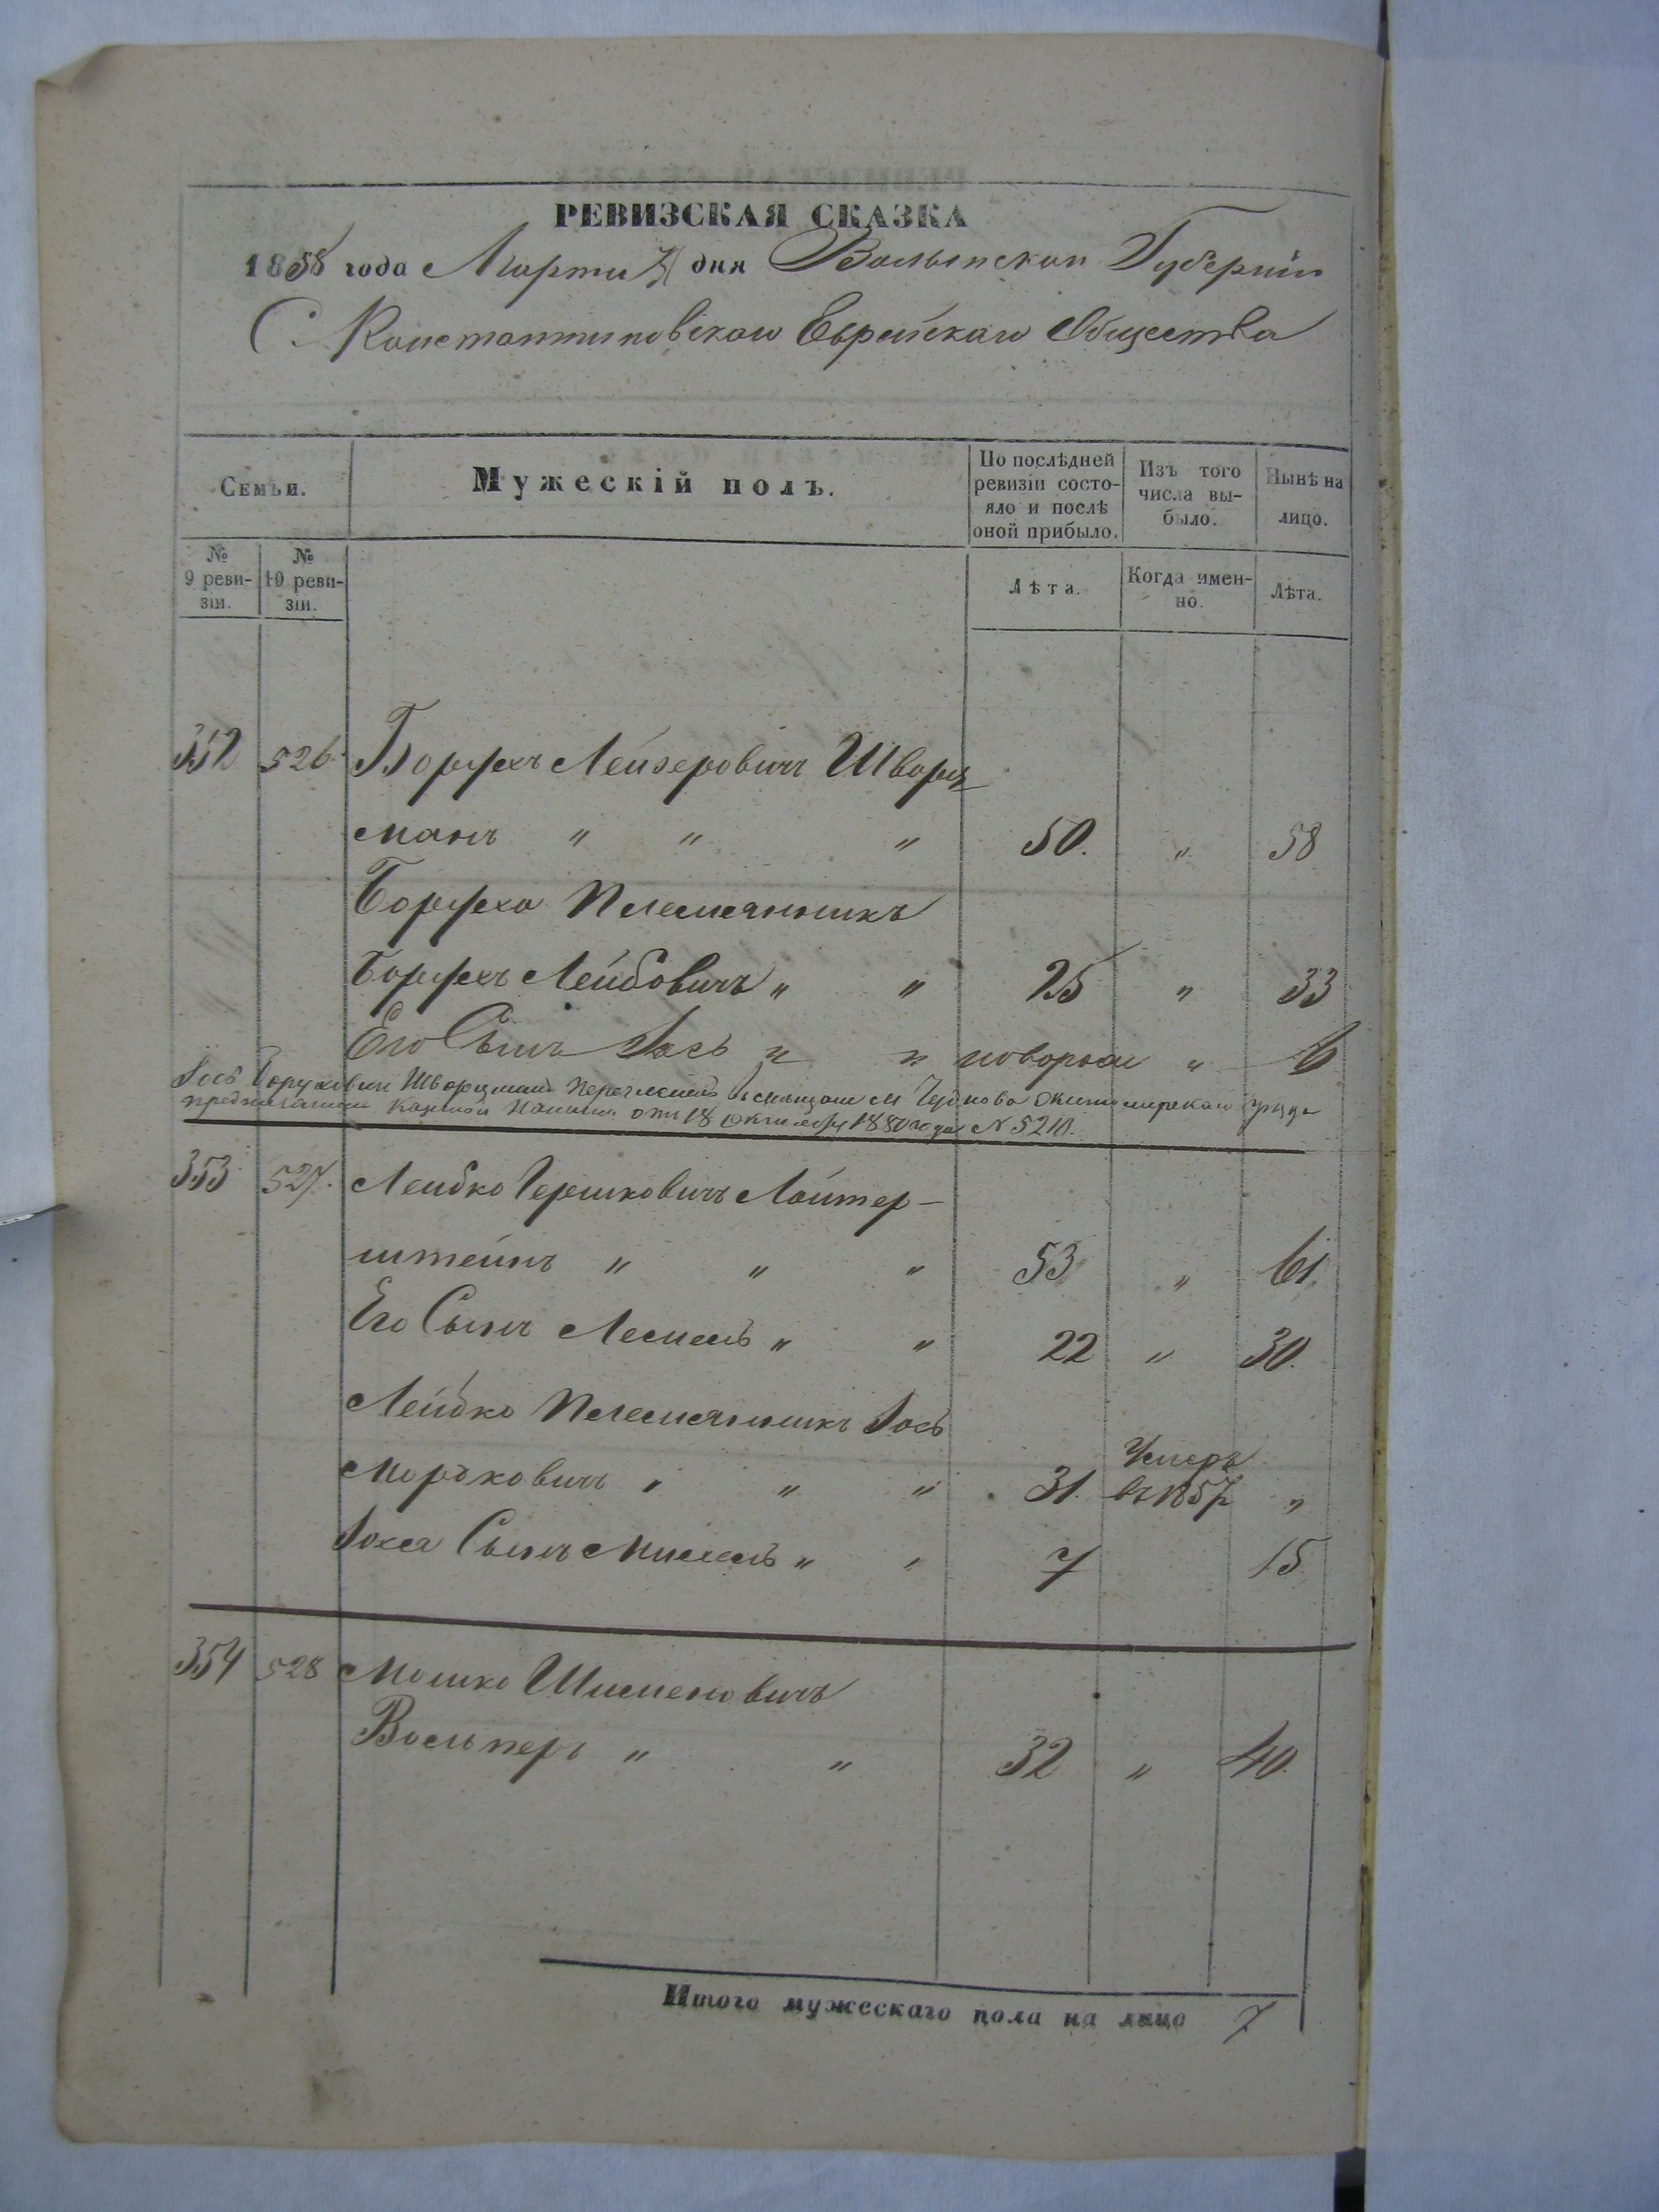 РЕВИЗСКАЯ СКАЗКА
1858 года Марта 7 дня Волынской Губернии
С. Константиновскаго Еврейскаго Общества
Семьи.
Мужескій полъ.
По послѣдней ревизіи состояло и послѣ оной прибыло.
Изъ того числа выбыло.
Нынѣ на лицо.
№ 9 ревизіи.
№ 10 ревизіи.
Лѣта.
Когда именно.
Лѣта.
352 526 Борухъ Лейзеровичъ Шварц
манъ " " " 50. " 58
Боруха Племянникъ
Борухъ Лейбовичъ " " 25 " 33
Его Сынъ Іось " " новорож " 6
Іось Борухович Шварцман перечислен в мещане м Чуднова Житомирскаго уезда
предписанием Казенной Палаты от 18 Октября 1880 года №
353 527. Лейбко Гершковичъ Лойтер-
штейнъ " " " 53 " 61.
Его Сынъ " " 22 " 30.
Лейбко Племянникъ Іось
Мордковичъ " " " 31. Умеръ въ 1857 "
Іося Сынъ " " 7 15
354 528 Мошко Шименовичъ
" " 32 " 40.
Итого мужескаго пола на лицо 7